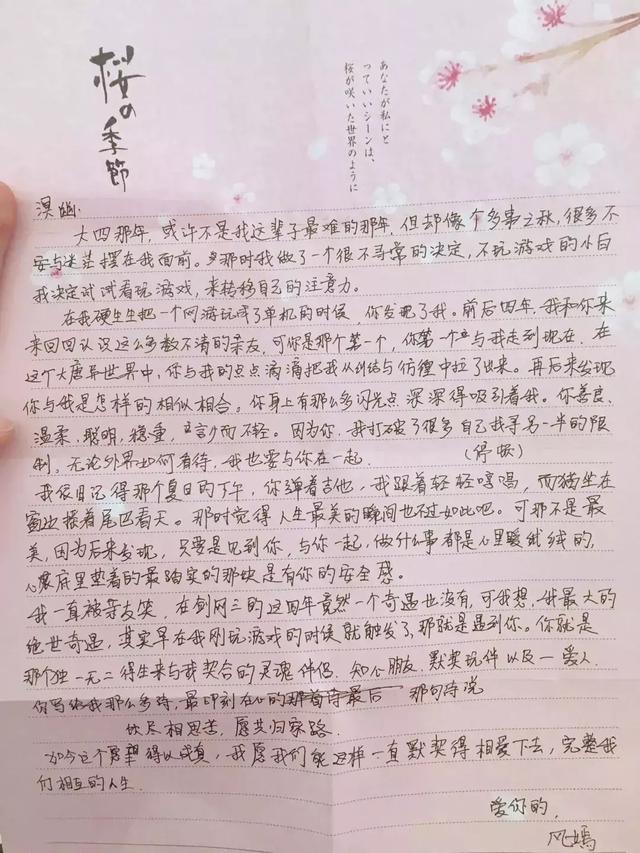 桜の季節
あなたが私にと
っていいシーンは、
桜が咲いた世界のように
溟幽:
大四那年,或许不是我这辈子最难的那年,但却像个多事之秋,很多不
安与迷茫摆在我面前。那时我做了一个很不寻常的决定,不玩游戏的小白
我决定试试看玩游戏,来转移自己的注意力。
在我硬生生把一个网游玩成了单机的时候,你发现了我。前后四年,我和你来
来回回认识这么多数不清的亲友,可你是那个第一个,你第一个与我走到现在,在
这个大唐异世界中,你与我的点点滴滴把我从纠结与彷徨中拉了出来。再后来发现
你与我是怎样的相似相合。你身上有那么多闪光点深深得吸引着我。你善良、
温柔、聪明,稳重,而不轻。因为你,我打破了很多自己找寻另一半的限
制,无论外界如何看待,我也要与你在一起.
(停顿)
我很日记得那个夏日的下午,你弹着吉他,我跟着轻轻哼唱,而猫坐在
窗边摇着尾巴看天。那时觉得人生最美的瞬间也不过如此吧。可那不是最
美,因为后来发现,只要是见到你,与你一起,做什么事都是心里暖绒绒的,
心窝底里垫着的最踏实的那块是有你的安全感。
我一直被亲友笑,在剑网三的这四年竟然一个奇遇也没有,可我想,我最大的
绝世奇遇,其实早在我刚玩游戏的时候就触发了,那就是遇到你。你就是
那个独一无二得生来与我契合的灵魂伴侣.知心朋友.默契玩伴以及一爱人.
你写给我那么多诗,最印刻在心的那首诗最后 那句诗说
饮尽相思苦,愿共归家路.
如今这个愿望得以成真,我愿我们能这样一直默契得相爱下去,完整我
们相互的人生.
爱你的,
风嫣